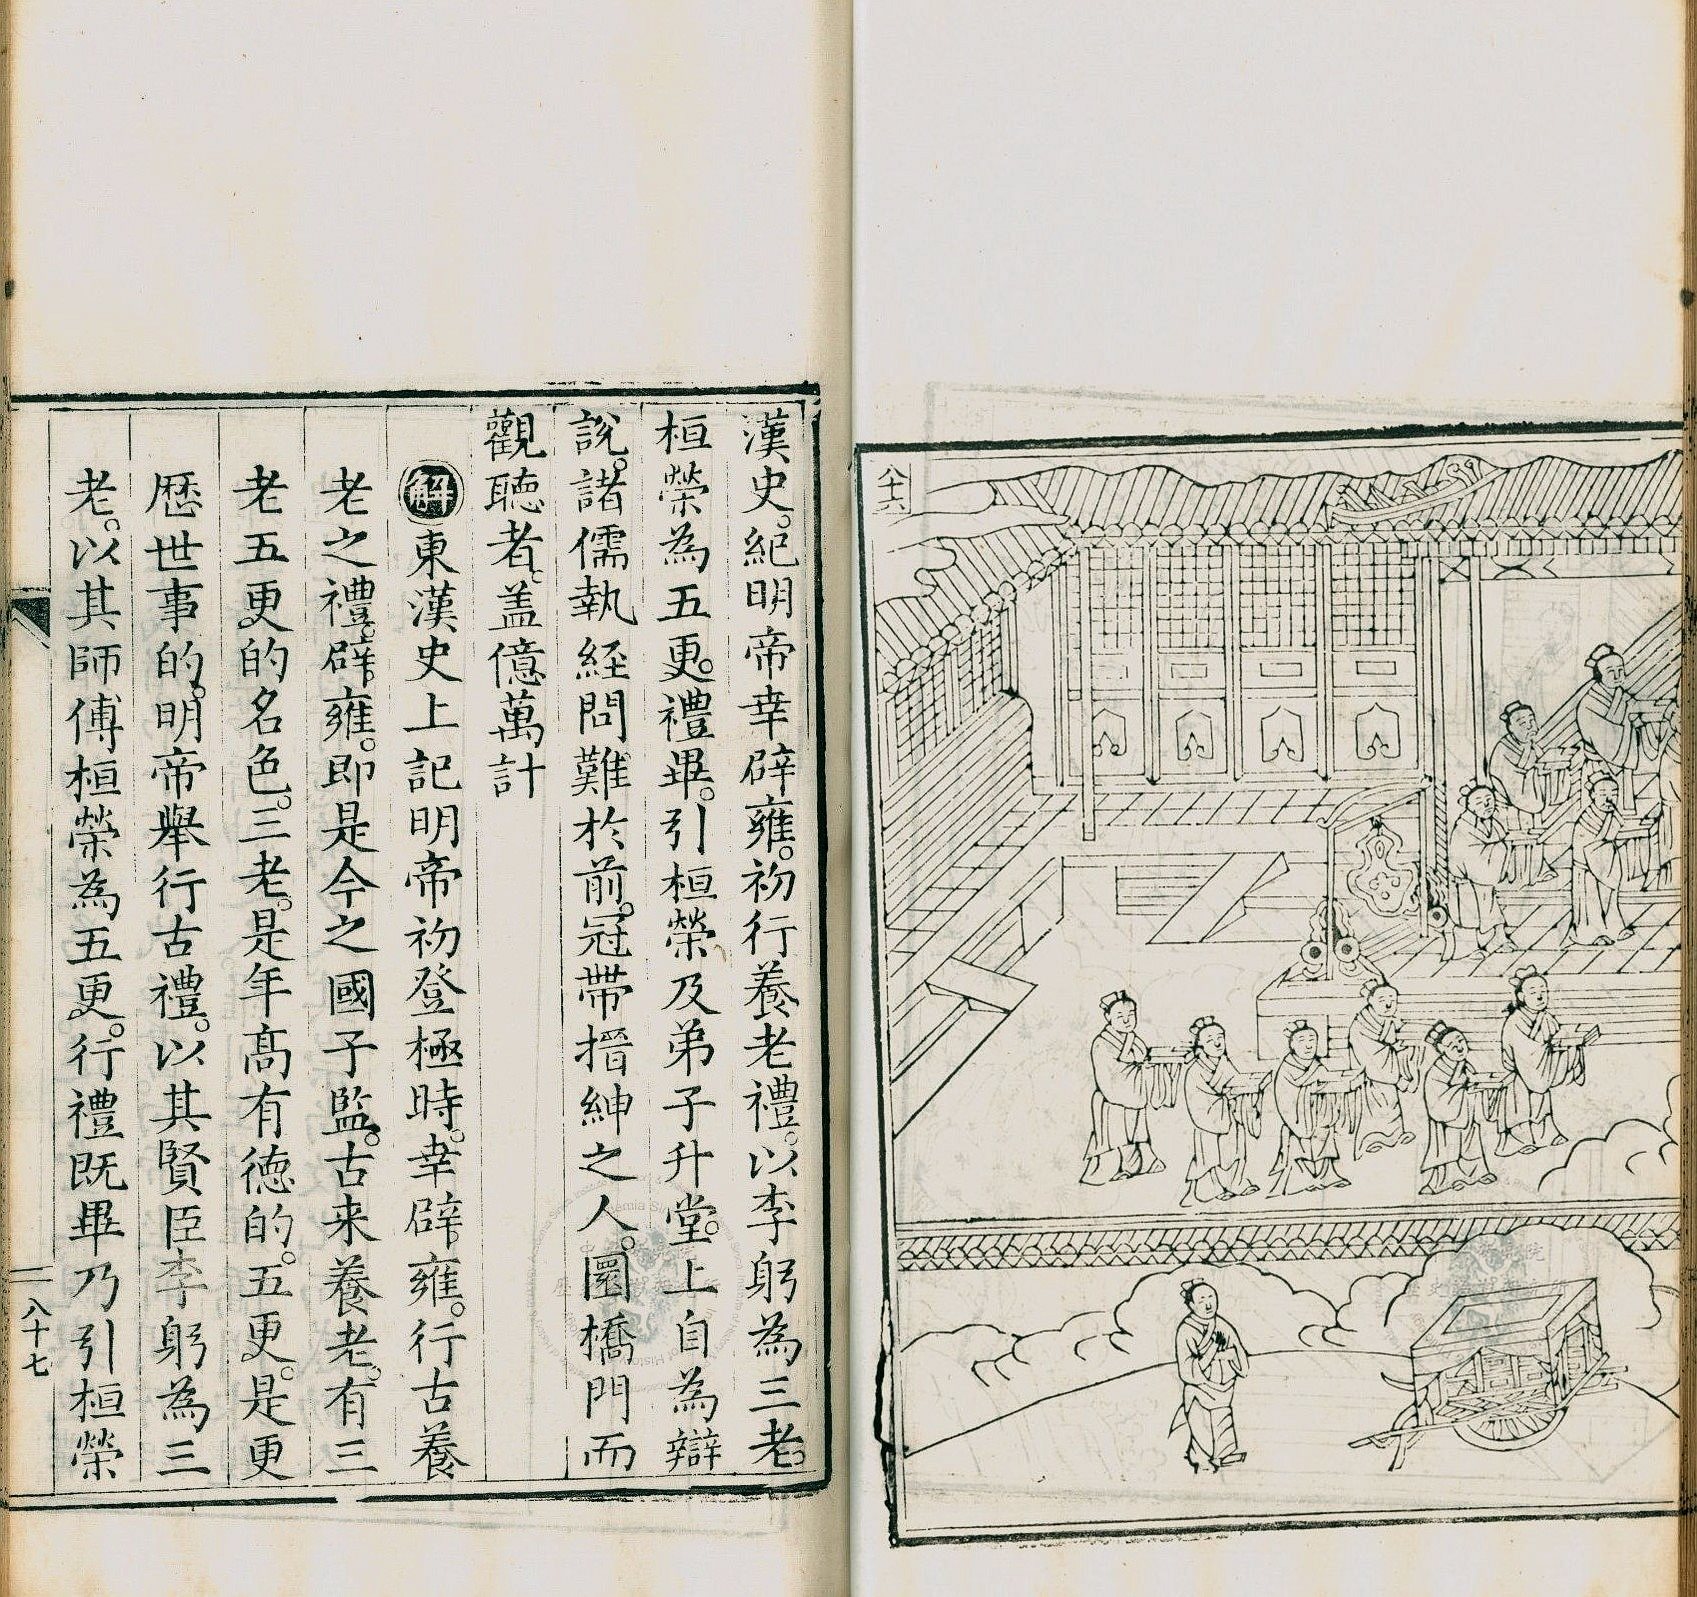 八十六
漢史。紀明帝幸辟雍。初行養老禮。以李躬為三老。
桓榮為五更。禮畢。引桓榮及弟子升堂。上自為辯
說。諸儒執經問難於前。冠帶搢紳之人。圜橋門而
觀聽者。盖億萬計
解東漢史上記明帝初登極時。幸辟雍。行古養
老之禮。辟雍。即是今之國子監。古来養老。有三
老五更的名色。三老。是年高有德的。五更。是更
歷世事的。明帝舉行古禮。以其賢臣李躬為三
老。以其師傅桓榮為五更。行禮既畢乃引桓榮
八十七